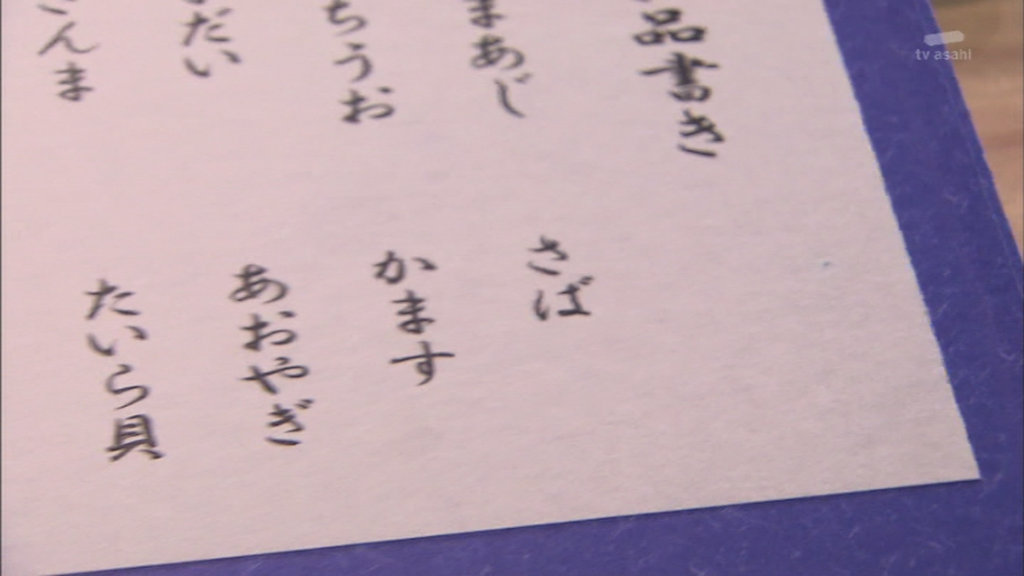 品書き
まあじ
ちうお
だい
さんま
さば
かます
あおやぎ
たいら貝
tv asahi